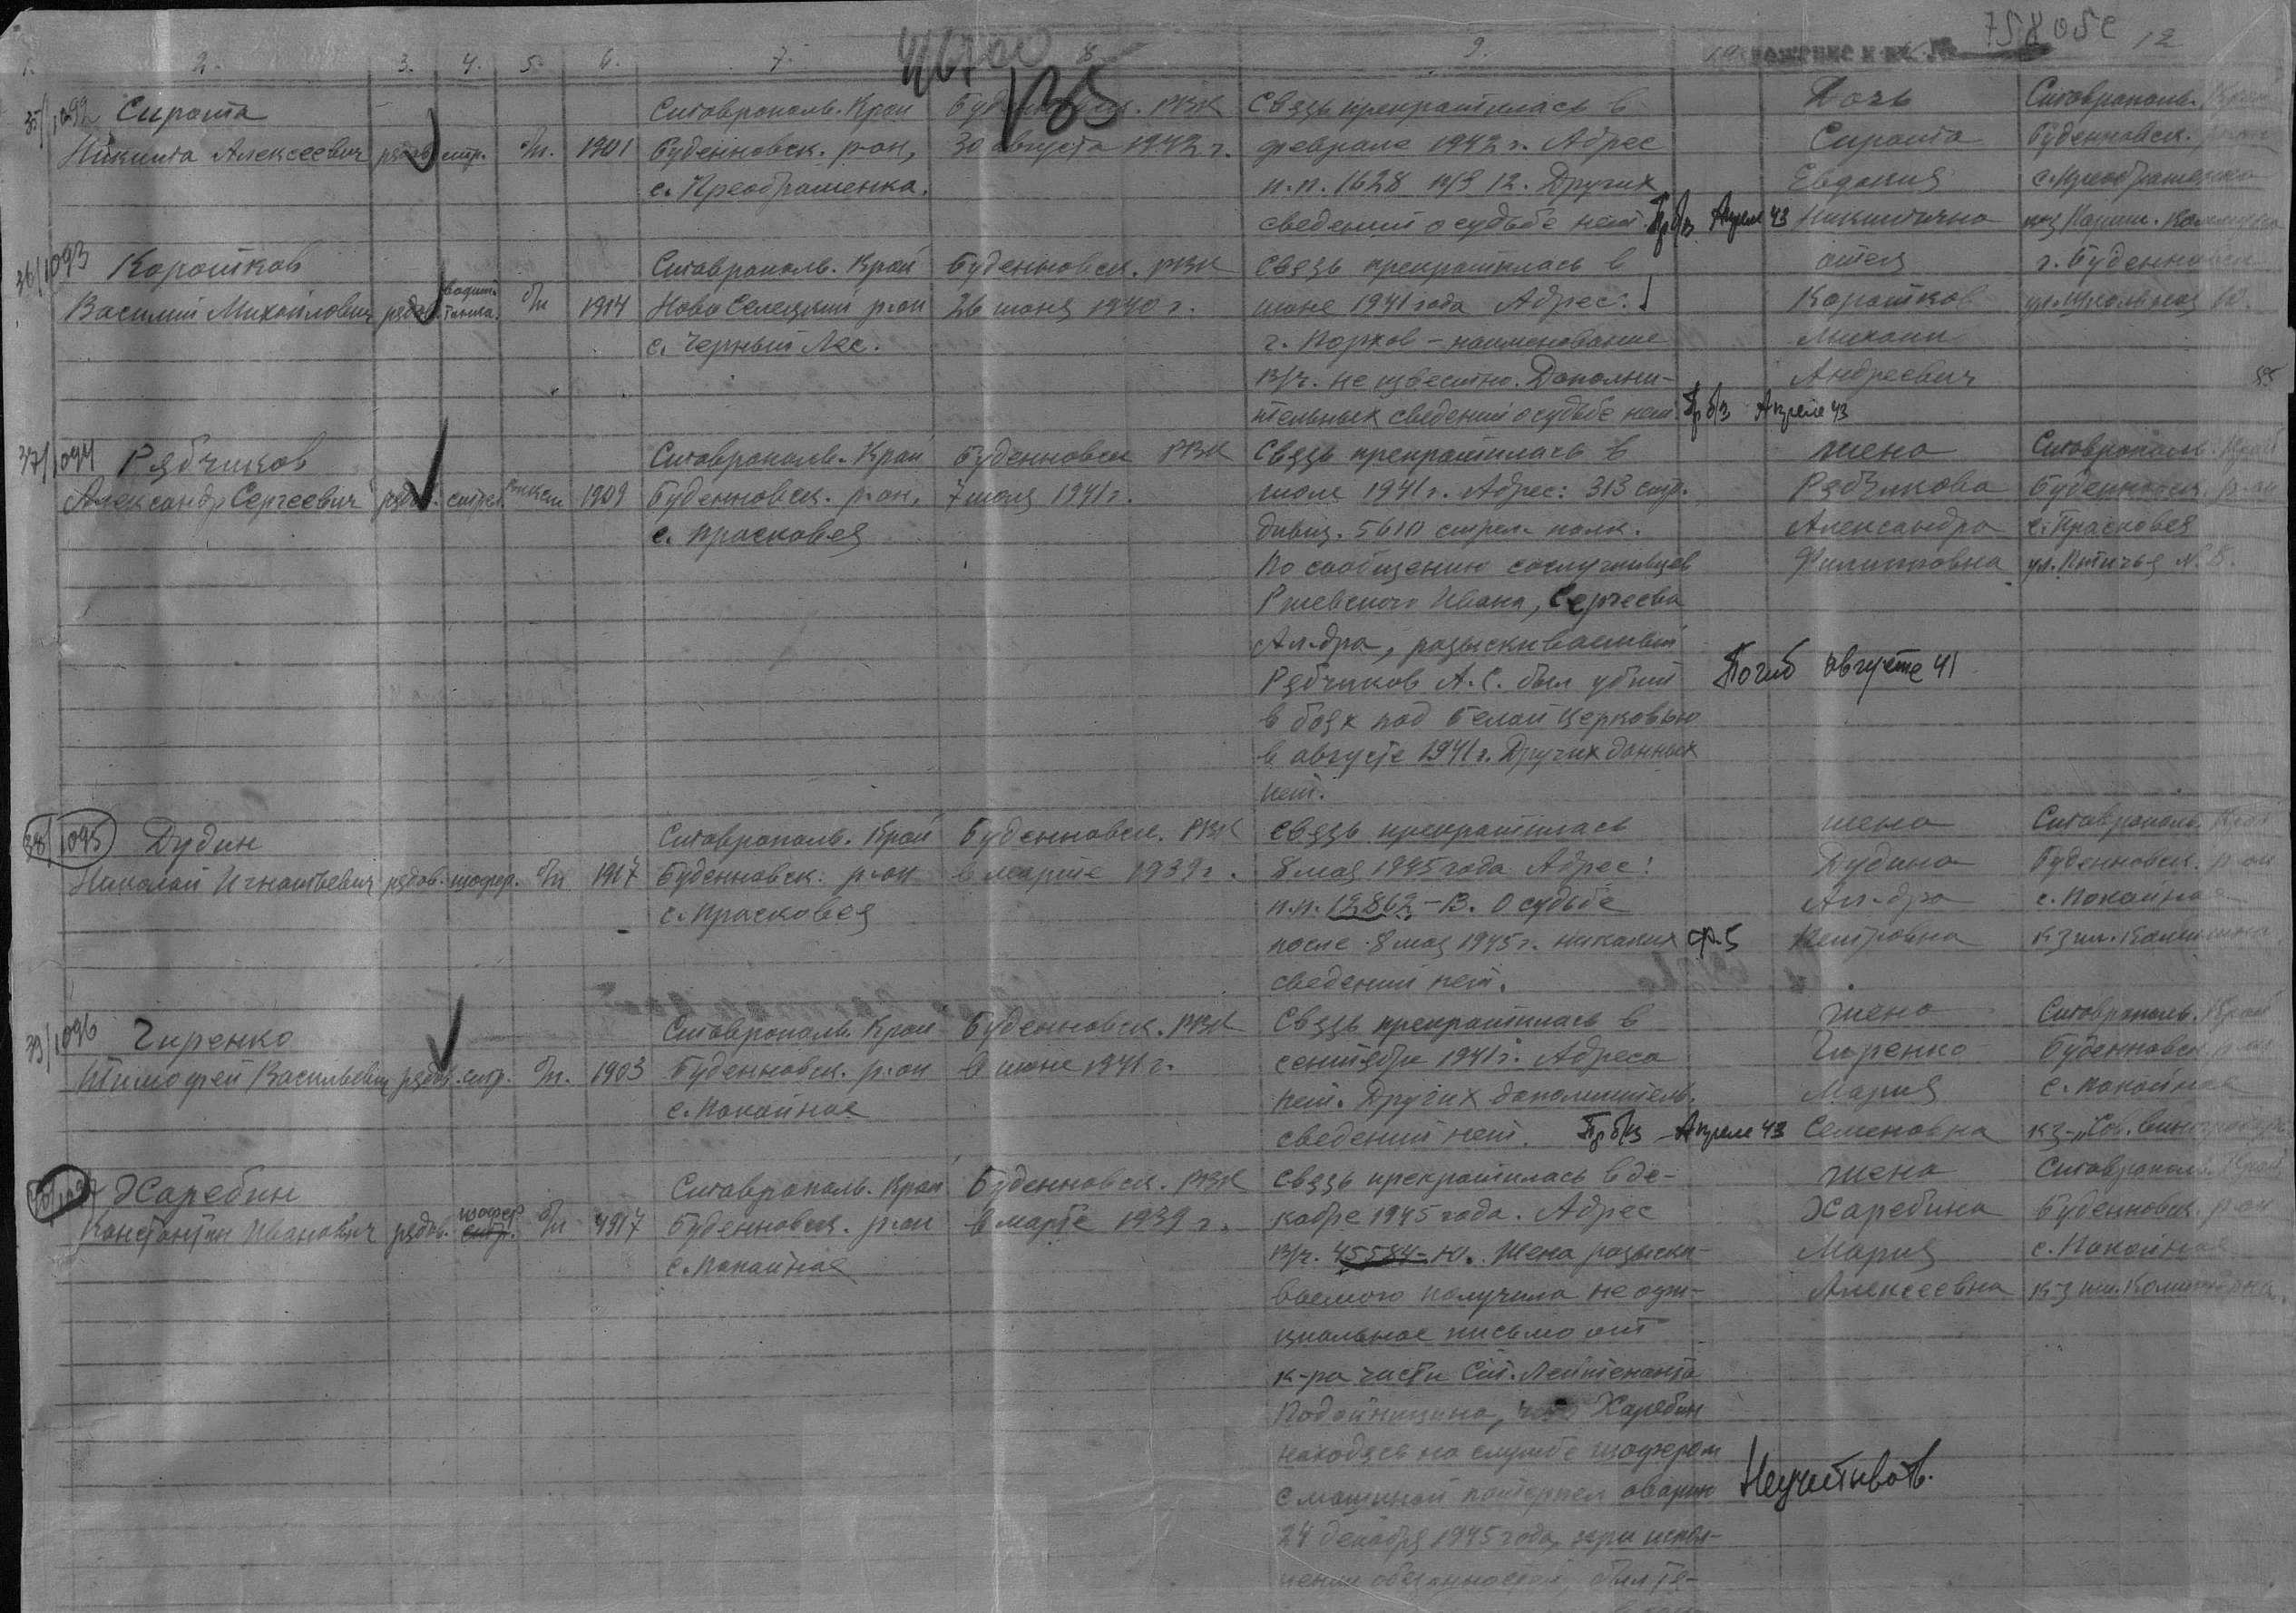 758052 12
135
1. 2. 3. 4. 5. 6. 7. 8. 9.
35/1092 Сирота
Никита Алексеевич рядов. стр. б/п. 1901
Ставрополь. Край
Буденновск. р-он,
с. Преображенка.
РВК
30 августа 1942 г.
Связь прекратилась в
феврале 1942 г. Адрес
п.п. 1628 п/я 12. Других
сведений о судьбе нет. Пр б/з Апреле 43
Дочь
Сирота
Евдокия
Никитична
Ставрополь. Край
Буденновск. р-он
с. Преображенка
36/1093 Коротков
Василий Михайлович рядов. водит. танка. б/п 1914
Ставрополь. Край
Ново Селецкий р-он
с. Черный Лес.
Буденновск. РВК
26 июня 1940 г.
Связь прекратилась в
июне 1941 года Адрес:
г. Порхов – наименование
в/ч. не известно. Дополни-
тельных сведений о судьбе нет. Пр б/з Апреле 43
отец
Коротков
Михаил
Андреевич
г. Буденновск
37/1094 Рябчиков
Александр Сергеевич рядов. стрел. 1909
Ставрополь. Край
Буденновск. р-он,
с. Прасковея
Буденновск РВК
7 июля 1941 г.
Связь прекратилась в
июле 1941 г. Адрес: 313 стр.
дивиз. 5610 стрел. полк.
По сообщению сослуживцев
Ржевского Ивана, Сергеева
Ал-дра, разыскиваемый
Рябчиков А. С. был убит
в боях под Белой Церковью
в августе 1941 г. Других данных
нет.
Погиб августе 41
жена
Рябчикова
Александра
Филипповна
Ставрополь. Край
Буденновск. р-он
с. Прасковея
ул. Птичья № 8.
38/1095 Дудин
Николай Игнатьевич рядов. шофер. б/п 1917
Ставрополь. Край
Буденновск. р-он
с. Прасковея
Буденновск. РВК
в марте 1939 г.
Связь прекратилась
8 мая 1945 года Адрес:
п.п. 12862 – В. О судьбе
после 8 мая 1945 г. никаких ф. 5
сведений нет.
жена
Дудина
Ал-дра
Петровна
Ставрополь. Край
Буденновск. р-он
с. Покойное
к-з им. Калинина
39/1096 Чиренко
Тимофей Васильевич рядов. стр. б/п. 1903
Ставрополь. Край
Буденновск. р-он
с. Покойное
Буденновск. РВК
в июне 1941 г.
Связь прекратилась в
сентябре 1941 г. Адреса
нет. Других дополнитель.
сведений нет. Пр б/з Апреле 43
жена
Чиренко
Мария
Семеновна
Ставрополь. Край
Буденновск р-он
с. Покойное
Харебин
Константин Иванович рядов. шофер стр. б/п 1917
Ставрополь. Край
Буденновск. р-он
с. Покойное
Буденновск. РВК
в марте 1939 г.
Связь прекратилась в де-
кабре 1945 года. Адрес
в/ч. 45584-Ю. Жена разыски-
ваемого получила не офи-
циальное письмо от
к-ра части Ст. Лейтенанта
что Харебин
находясь на службе шофером
с машиной потерпел аварию
24 декабря 1945 года, при испол-
нении обязанностей,
Неучитывать.
жена
Харебина
Мария
Алексеевна
Ставрополь. Край
Буденновск. р-он
с. Покойное